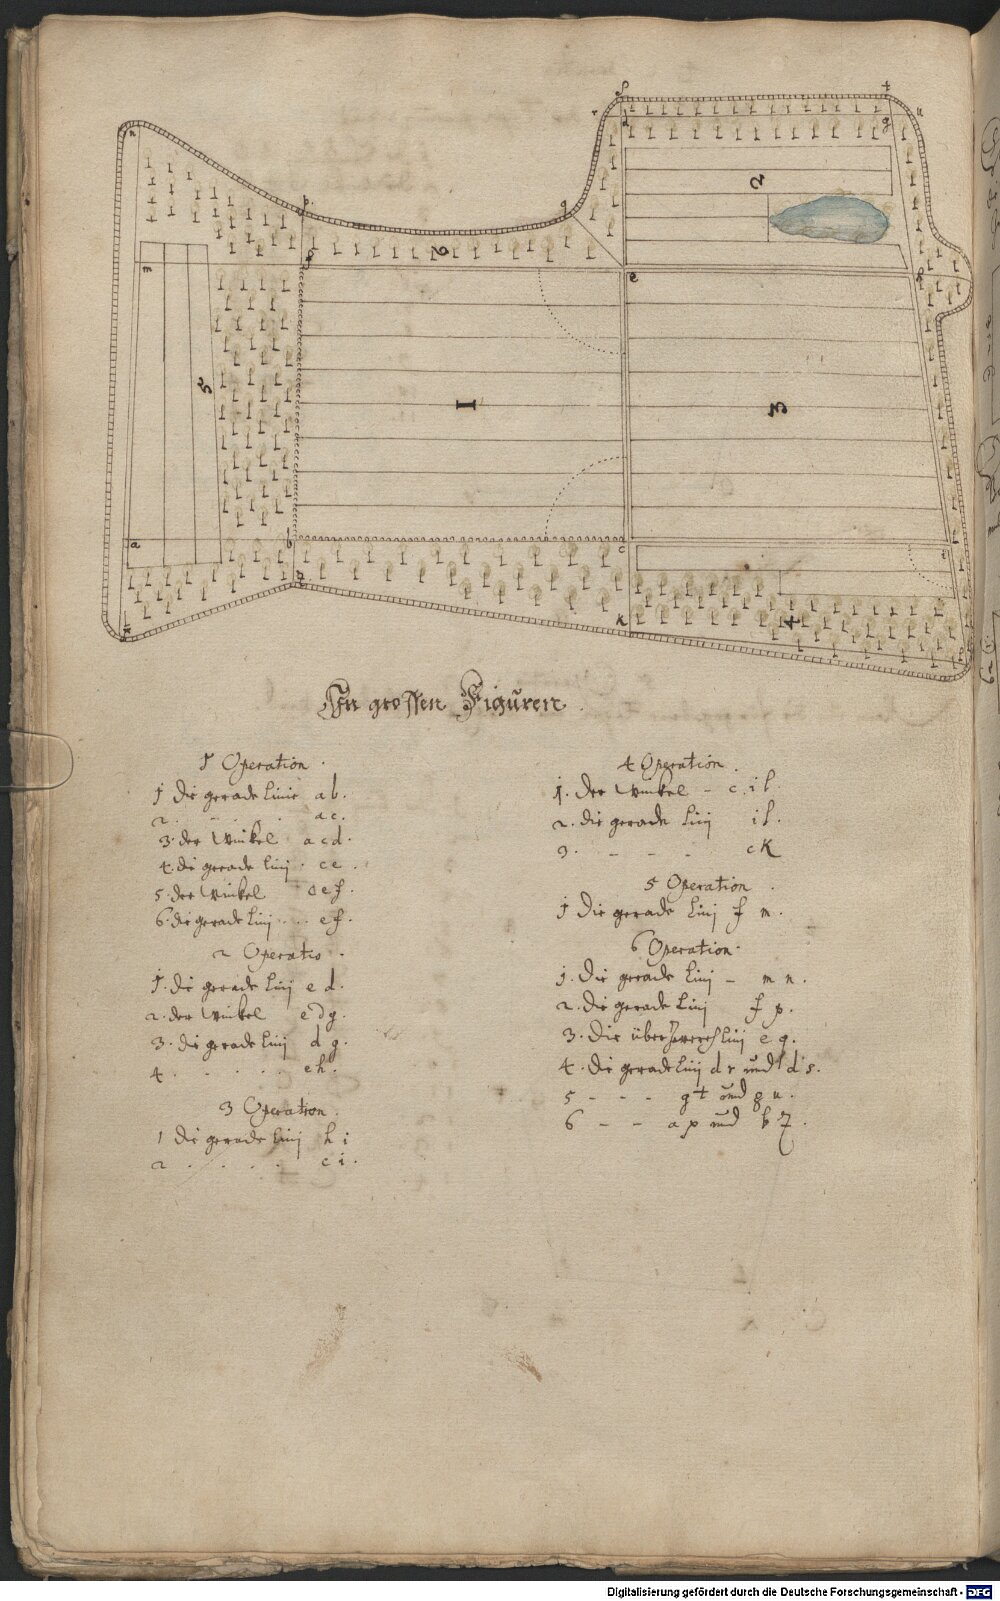 n
p
q
r
s
d
t
u
g
2
6
m
e
h
5
1
3
a
b
c
i
k
4
In grossen Figuren
1 Operation.
1 die gerade linie ab.
2. . . . ac.
3. der Winkel acd.
4. die gerade linj. ce.
5. der Winkel cef.
6. die gerade linj ... ef.
2 Operatio.
1. die gerade linj ed.
2. der Winkel edg.
3. die gerade linj dg.
4 . . . . . eh.
3 Operation.
1 die gerade linj hi
2 . . . . . ci.
4 Operation.
1. der Winkel - c.il.
2. die gerade linj il.
3. - - - . cK
5 Operation.
1 die gerade linj f m.
6 Operation.
1. die gerade linj - m n.
2. die gerade linj f p.
3. die überzwerch linj e q.
4. die gerade linj dr und ds.
5 - - - gt und gu.
6 - - ap und b7.
Digitalisierung gefördert durch die Deutsche Forschungsgemeinschaft - DFG